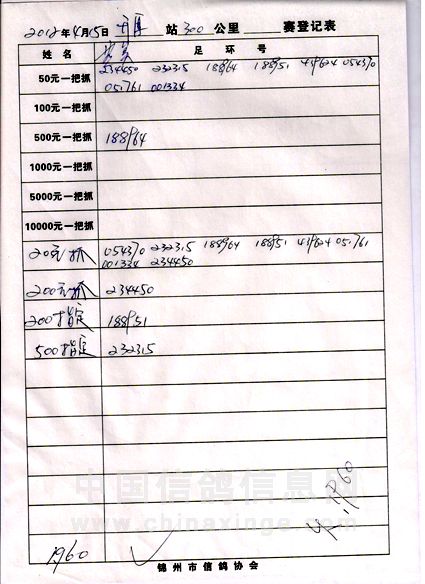 2012年4月15日 站300公里 赛登记表
姓名 足环号
50元一把抓 234450 232315 188964 188951 419624 054370
051761 001334
100元一把抓
500元一把抓 188964
1000元一把抓
5000元一把抓
10000元一把抓
20元抓 054370 232315 188964 188951 419624 051761
001334 234450
200元抓 234450
200指定 188951
500指定 232315
中国信鸽信息网
www.chinaxinge.com
1960
锦州市信鸽协会